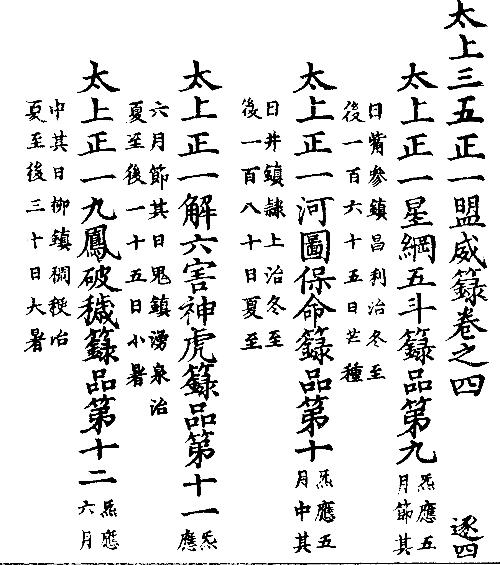 太上三五正一盟威籙卷之四 逐四
太上正一星綱五斗籙品第九 炁應五
月節其
日觜參鎮昌利治冬至
後一百六十五日芒種
太上正一河圖保命籙品第十 炁應五
月中其
日井鎮隷上治冬至
後一百八十日夏至
太上正一解六害神虎籙品第十一 炁
應
六月節其日鬼鎮湧泉治
夏至後一十五日小暑
太上正一九鳳破穢籙品第十二 炁應
六月
中其日柳鎮稠稉治
夏至後三十日大暑